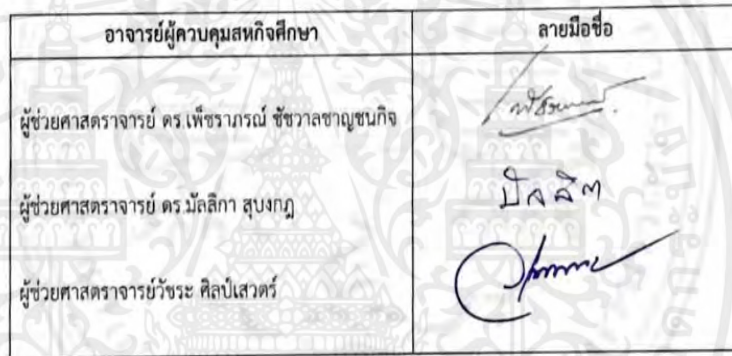 อาจารย์ผู้ควบคุมสหกิจศึกษา ลายมือชื่อ
ผู้ช่วยศาสตราจารย์ ดร.เพ็ชราภรณ์ ชัชวาลชาญชนกิจ
ผู้ช่วยศาสตราจารย์ ดร.มัลลิกา สุบงกฎ
ผู้ช่วยศาสตราจารย์วัชระ ศิลป์เสวตร์